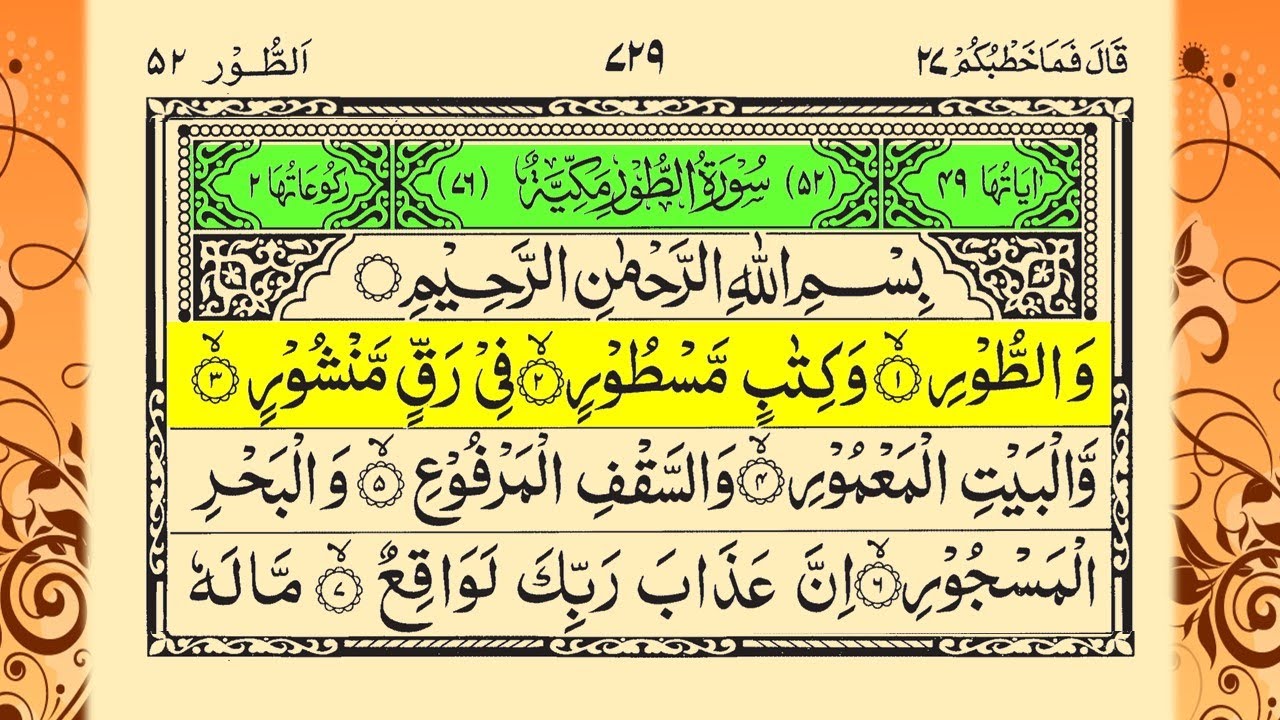 قَالَ فَمَا خَطْبُكُمْ ۲۷ ۷۲۹ اَلطُّوْر ۵۲
اٰیَاتُهَا ۴۹ (۵۲) سُوْرَةُ الطُّوْرِ مَکِّیَّةٌ (۷۶) رُکُوْعَاتُهَا ۲
بِسْمِ اللّٰهِ الرَّحْمٰنِ الرَّحِیْمِ
وَالطُّوْرِ ۙ۱ وَكِتٰبٍ مَّسْطُوْرٍ ۙ۲ فِیْ رَقٍّ مَّنْشُوْرٍ ۙ۳
وَّالْبَیْتِ الْمَعْمُوْرِ ۙ۴ وَالسَّقْفِ الْمَرْفُوْعِ ۙ۵ وَالْبَحْرِ
الْمَسْجُوْرِ ۙ۶ اِنَّ عَذَابَ رَبِّكَ لَوَاقِعٌ ۙ۷ مَّا لَهٗ